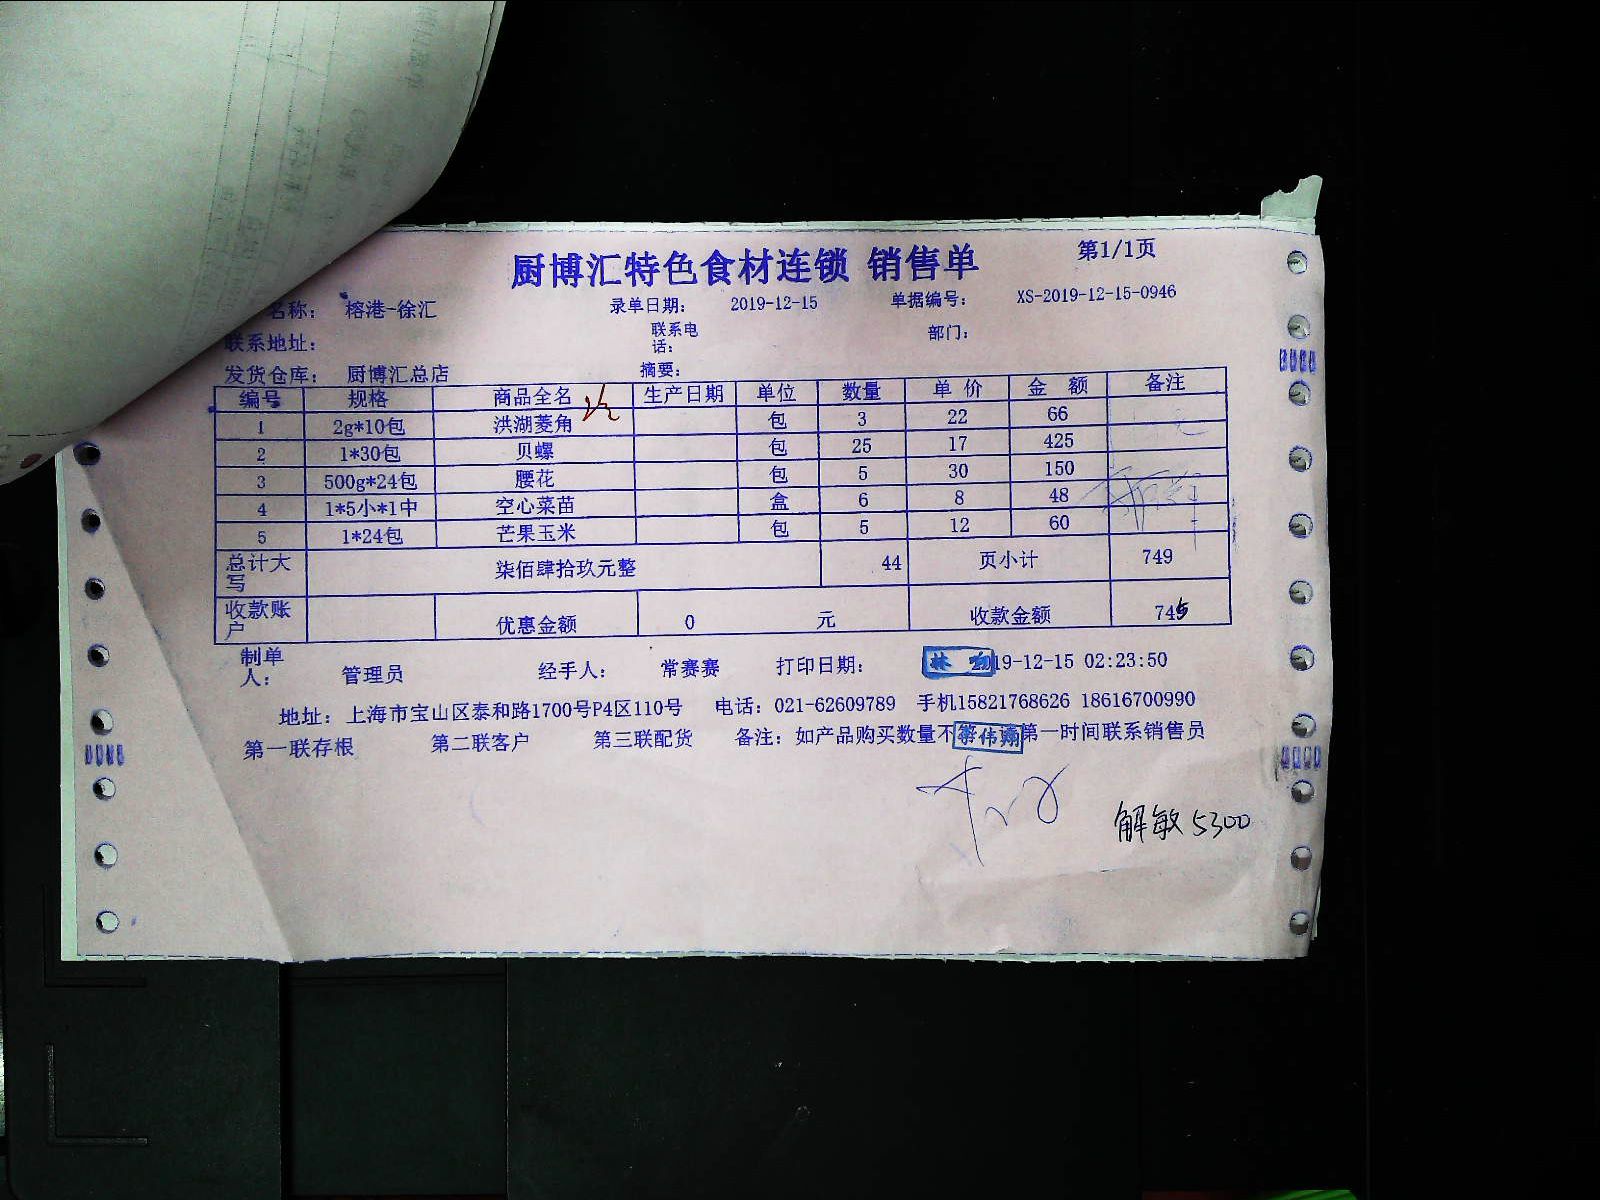 厨博汇特色食材连锁 销售单
第1/1页
名称： 榕港-徐汇 录单日期： 2019-12-15 单据编号： XS-2019-12-15-0946
联系地址： 联系电话： 部门：
发货仓库： 厨博汇总店 摘要：
编号 规格 商品全名 生产日期 单位 数量 单价 金额 备注
1 2g*10包 洪湖菱角 包 3 22 66
2 1*30包 贝螺 包 25 17 425
3 500g*24包 腰花 包 5 30 150
4 1*5小*1中 空心菜苗 盒 6 8 48
5 1*24包 芒果玉米 包 5 12 60
总计大写 柒佰肆拾玖元整 44 页小计 749
收款账户 优惠金额 0 元 收款金额 745
制单人： 管理员 经手人： 常赛赛 打印日期： 19-12-15 02:23:50
地址：上海市宝山区泰和路1700号P4区110号 电话：021-62609789 手机15821768626 18616700990
第一联存根 第二联客户 第三联配货 备注：如产品购买数量不 第一时间联系销售员
解敏 5300